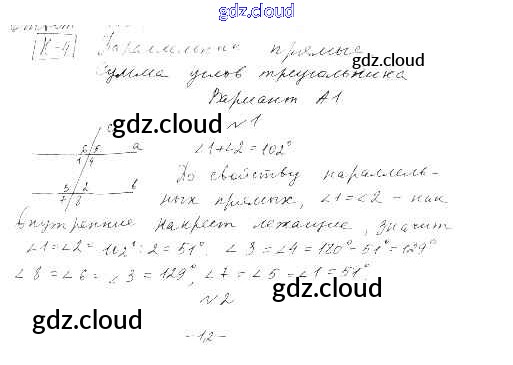 gdz.cloud
К-4 Параллельные прямые
gdz.cloud
Сумма углов треугольника
Вариант А1
gdz.cloud
№1
c
6 5 a
1 4
3 2 b
7 8
∠1+∠2=102°
По свойству параллель-
ных прямых, ∠1=∠2 - как
gdz.cloud
внутренние накрест лежащие, значит
∠1=∠2= 102°:2=51°. ∠3=∠4=180°-51°=129°
∠8=∠6=∠3=129°, ∠7=∠5=∠1=51°.
№2
gdz.cloud
gdz.cloud
-12-